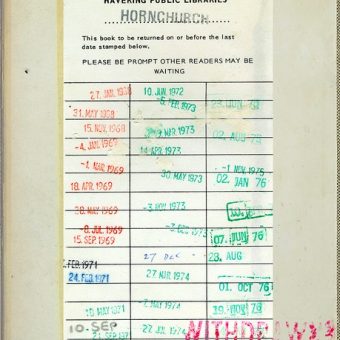 HAVERING PUBLIC LIBRARIES
HORNCHURCH
This book to be returned on or before the last
date stamped below.
PLEASE BE PROMPT OTHER READERS MAY BE
WAITING
27. JAN. 1968 10. JUN. 1972
-5. FEB. 1973 23. JUN 75
31. MAY 1968
15. NOV. 1968 MAR. 1973 02. AUG 75
-4. JAN. 1969
14. APR. 1973
-4. MAR. 1969 -1. NOV. 1975
18. APR. 1969 30. MAY 1973 02. JAN 76
28. MAY 1969 -3. NOV. 1973
-8. JUL. 1969 -7. DEC. 07. JUN 76
15. SEP. 1969
27 DEC 23. AUG
FEB. 1971
24. FEB. 1971 27. MAR. 1974 01. OCT 76
10. MAY 1971 1974
10. SEP
27. JUL 1974 WITHDRAWN